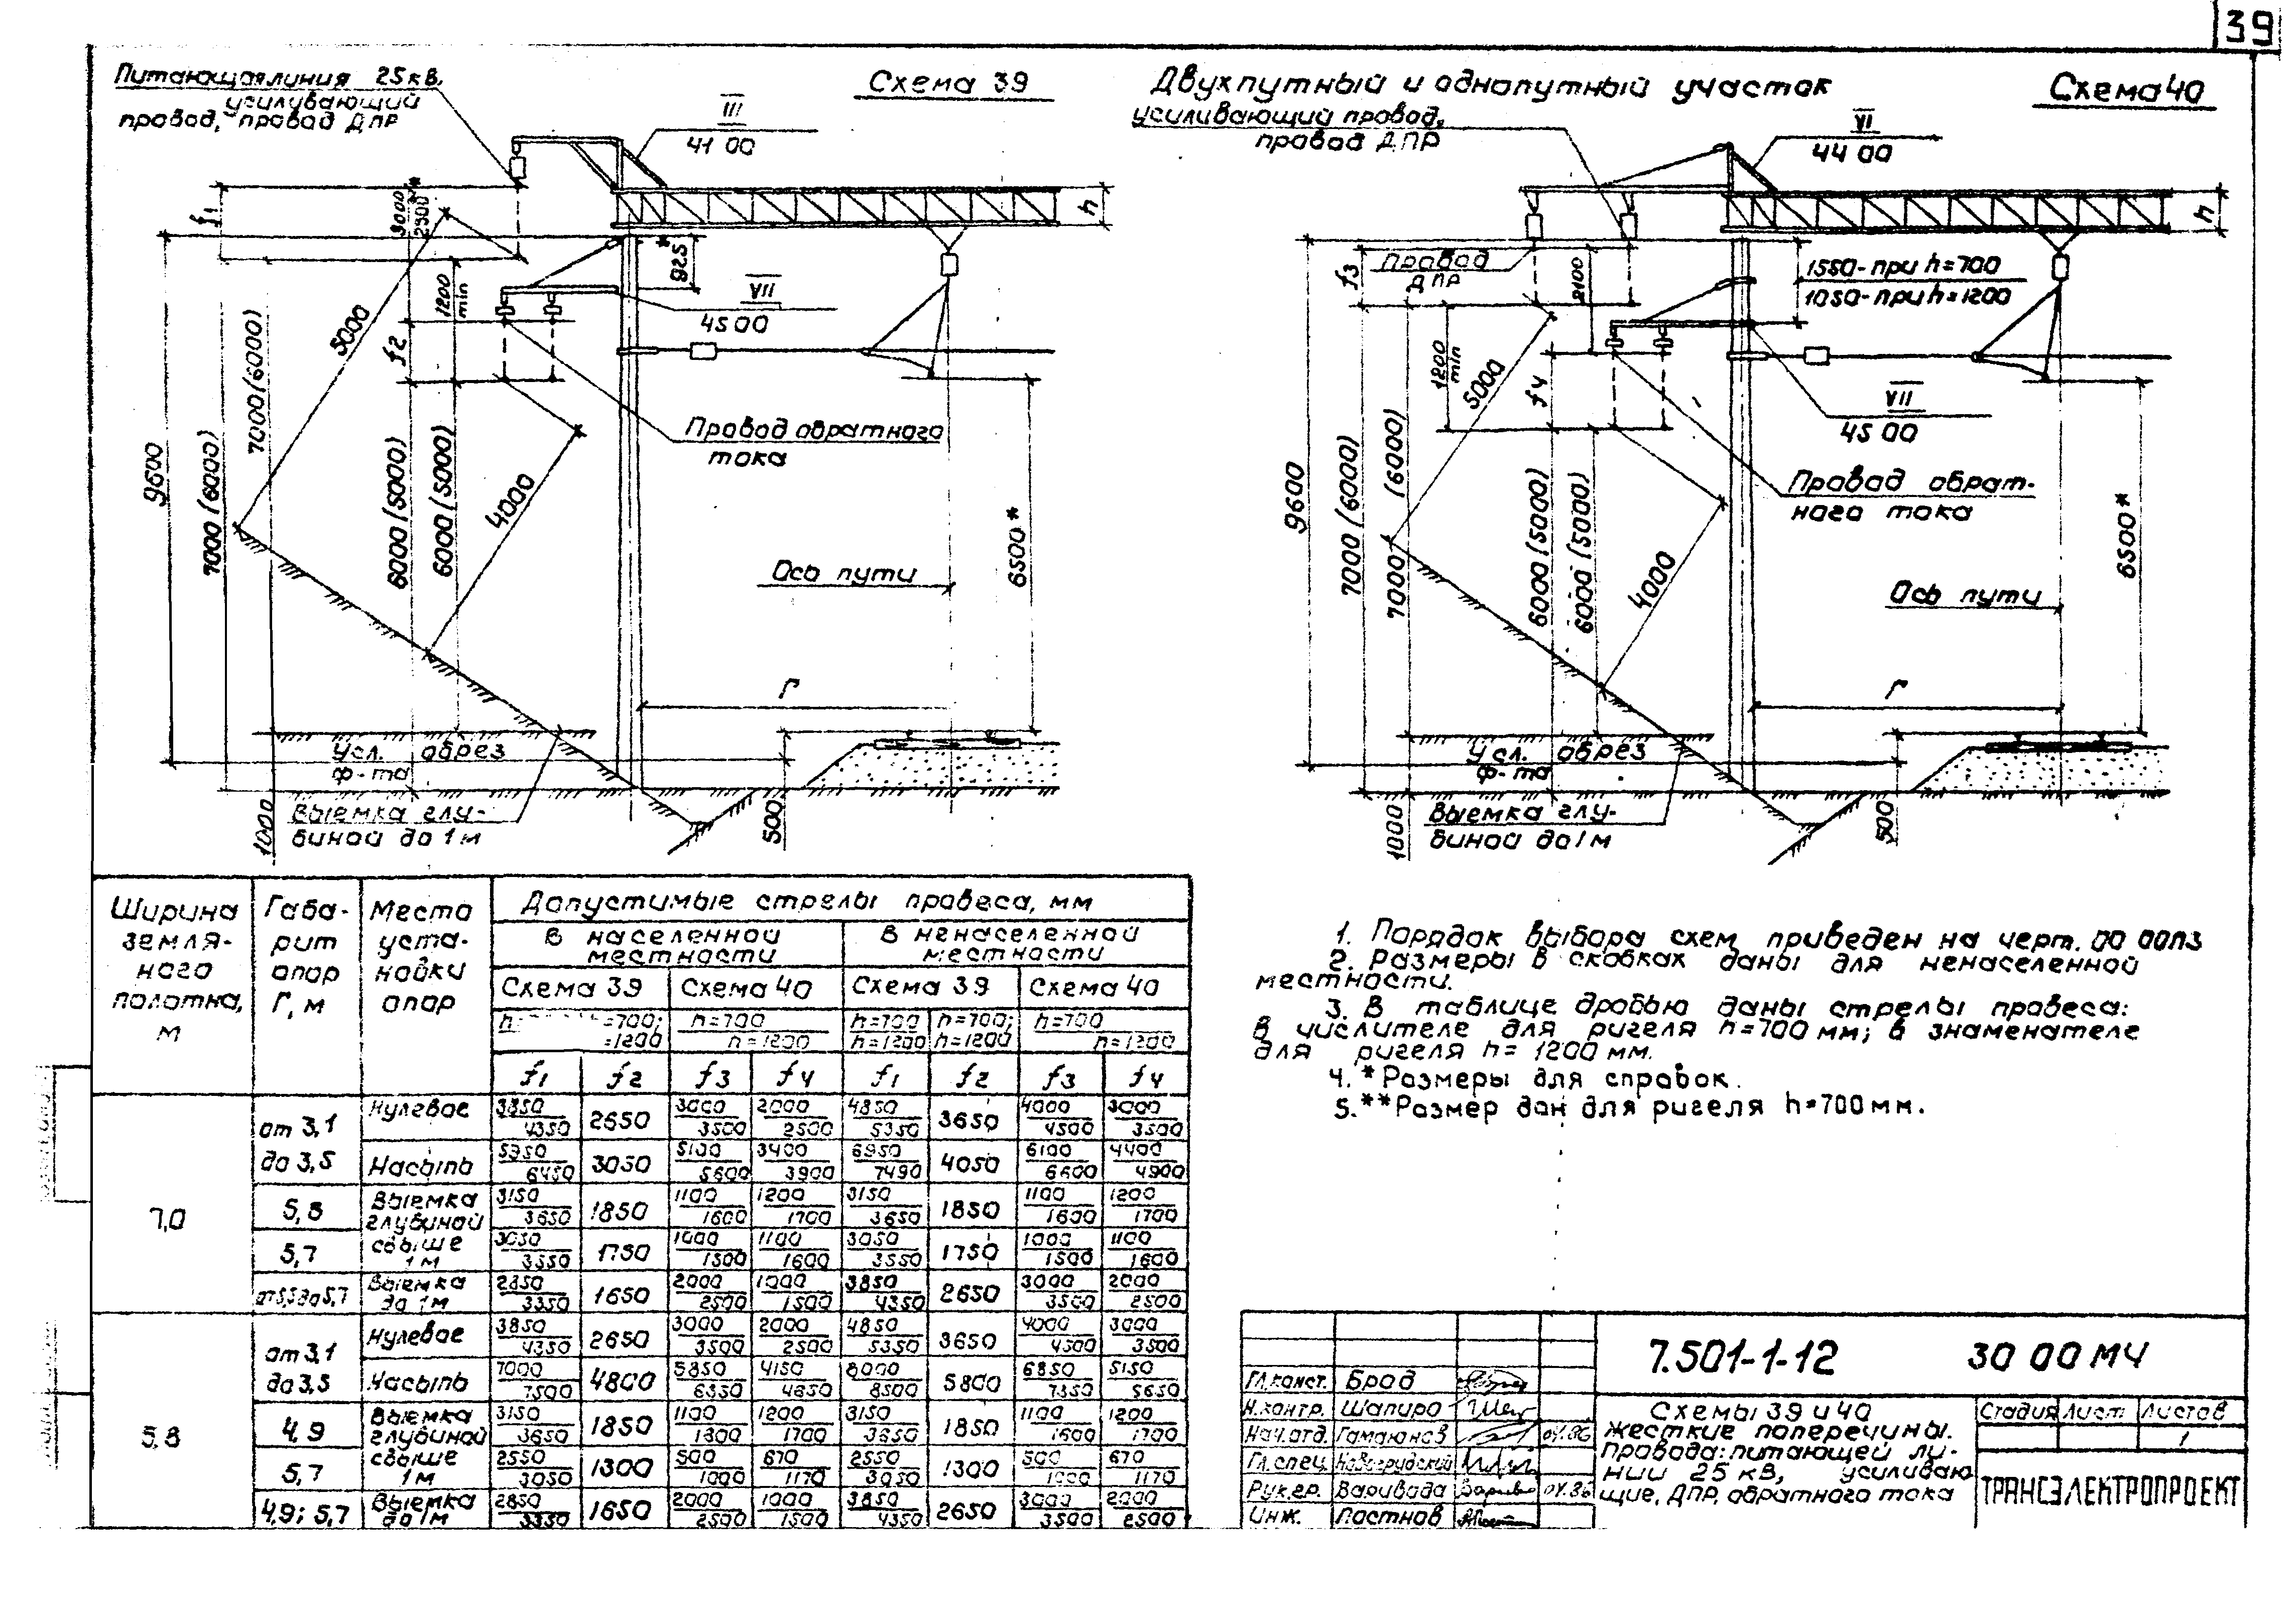 39
Питающая линия 25 кв,
усиливающий
провод, провод ДПР
Схема 39
III
41 00
f1
3000
2500
*
9600
7000 (6000)
7000 (6000)
5000
f2
1200
min
925
*
VII
4500
h
Провод обратного
тока
6000 (5000)
6000 (5000)
4000
6500*
Ось пути
Г
Усл. обрез
ф-та
Выемка глу-
биной до 1м
1000
500
Двухпутный и однопутный участок
Схема 40
усиливающий провод,
провод ДПР
VI
44 00
h
f3
Провод
ДПР
2100
1550-при h=700
1050-при h=1200
1200
min
5000
f4
VII
45 00
Провод обрат-
ного тока
9600
7000 (6000)
7000 (6000)
6000 (5000)
6000 (5000)
4000
6500*
Ось пути
Г
Усл. обрез
ф-та
Выемка глу-
биной до 1м
1000
500
Ширина земля-ного полотна, м
Габа-рит опор Г, м
Место уста-новки опор
Допустимые стрелы провеса, мм
В населенной местности
В ненаселенной местности
Схема 39 Схема 40 Схема 39 Схема 40
=700; h=700 h=700 h=700; h=700
=1200 h=1200 h=1200 h=1200 h=1200
f1 f2 f3 f4 f1 f2 f3 f4
7,0
от 3,1 до 3,5
Нулевое 3850/4350 2650 3000/3500 2000/2500 4850/5350 3650 4000/4500 3000/3500
Насыпь 5950/6450 3050 5100/5600 3400/3900 6950/7490 4050 6100/6600 4400/4900
Выемка глубиной свыше 1м
5,3 3150/3650 1850 1100/1600 1200/1700 3150/3650 1850 1100/1600 1200/1700
5,7 3050/3550 1750 1000/1500 1100/1600 3050/3550 1750 1000/1500 1100/1600
от 5,3 до 5,7 Выемка до 1м 2850/3350 1650 2000/2500 1000/1500 3850/4350 2650 3000/3500 2000/2500
5,8
от 3,1 до 3,5
Нулевое 3850/4350 2650 3000/3500 2000/2500 4850/5350 3650 4000/4500 3000/3500
Насыпь 7000/7500 4800 5850/6350 4150/4650 8000/8500 5800 6850/7350 5150/5650
Выемка глубиной свыше 1м
4,9 3150/3650 1850 1100/1600 1200/1700 3150/3650 1850 1100/1600 1200/1700
5,7 2550/3050 1300 500/1000 670/1170 2550/3050 1300 500/1000 670/1170
4,9; 5,7 Выемка до 1м 2850/3350 1650 2000/2500 1000/1500 3850/4350 2650 3000/3500 2000/2500
1. Порядок выбора схем приведен на черт. 00 00ПЗ
2. Размеры в скобках даны для ненаселенной
местности.
3. В таблице дробью даны стрелы провеса:
в числителе для ригеля h=700 мм; в знаменателе
для ригеля h= 1200 мм.
4. *Размеры для справок.
5.**Размер дан для ригеля h=700мм.
7.501-1-12 30 00 МЧ
Гл.конст. Брод
Н.контр. Шапиро
Нач.отд. Гамаюнов 04.86
Гл.спец. Новогрудский
Рук.гр. Варивода 04.86
Инж. Постнов
Схемы 39 и 40
жесткие поперечины.
Провода: питающей ли-
нии 25 кВ, усиливаю
щие, ДПР, обратного тока
Стадия Лист Листов
1
ТРАНСЭЛЕКТРОПРОЕКТ